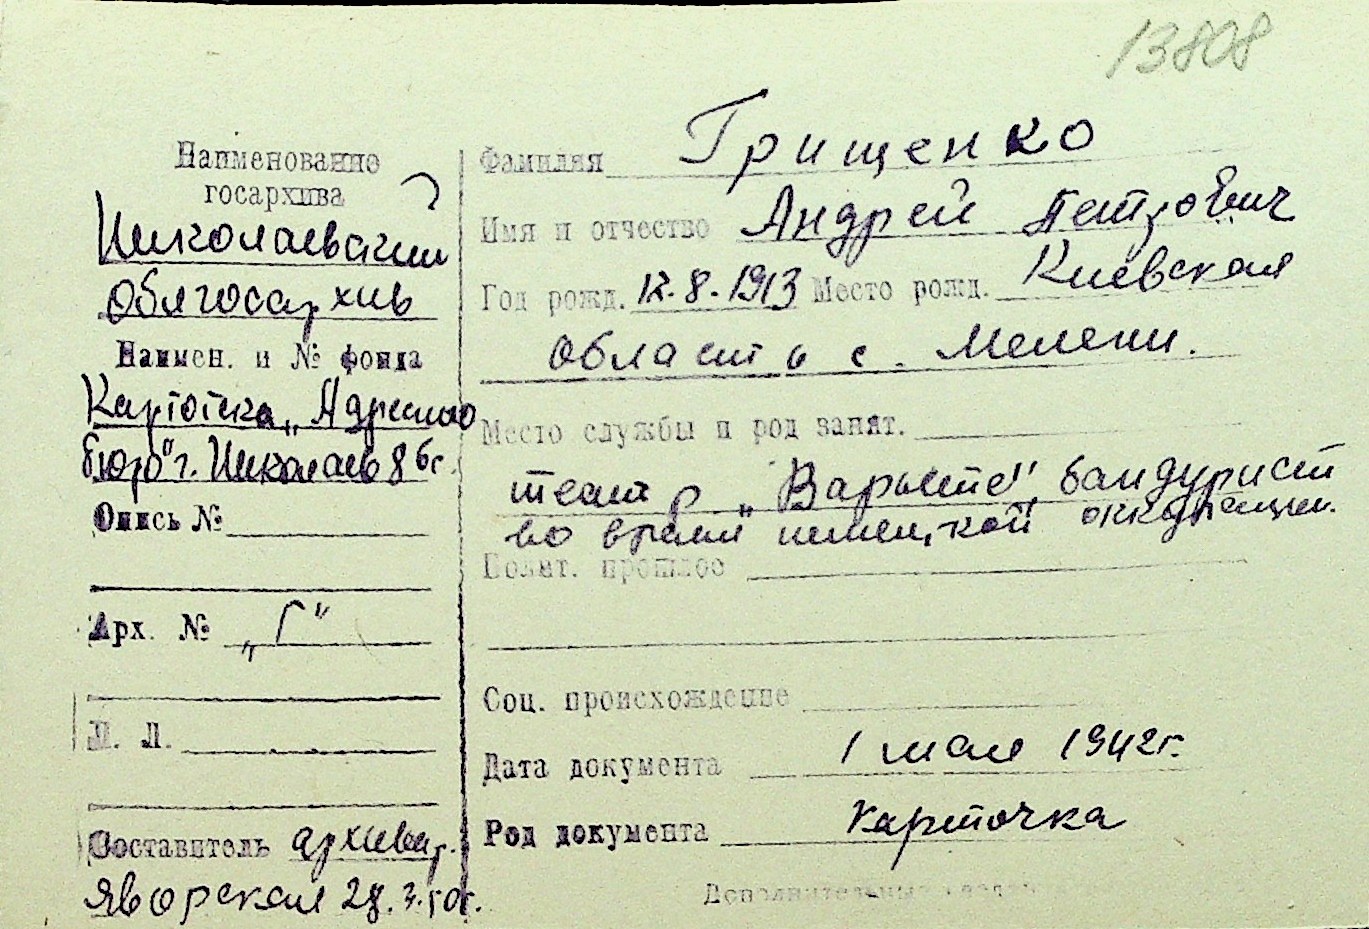 13808
Наименование
госархива
Николаевский
облгосархив
Наимен. и № фонда
Картотека „Адресно
бюро" г. Николаев 8 бг.
Опись №
Арх. № „Г"
Л. Л.
Составитель архивар.
Яворская 28.3.50г.
Фамилия Грищенко
Имя и отчество Андрей Петрович
Год рожд. 12.8.1913 Место рожд. Киевская
область с. Мелени.
Место службы и род занят.
театр „Варьете", бандурист
во время немецкой оккупации.
Полит. прошлое
Соц. происхождение
Дата документа 1 мая 1942г.
Род документа карточка
Дополнительные